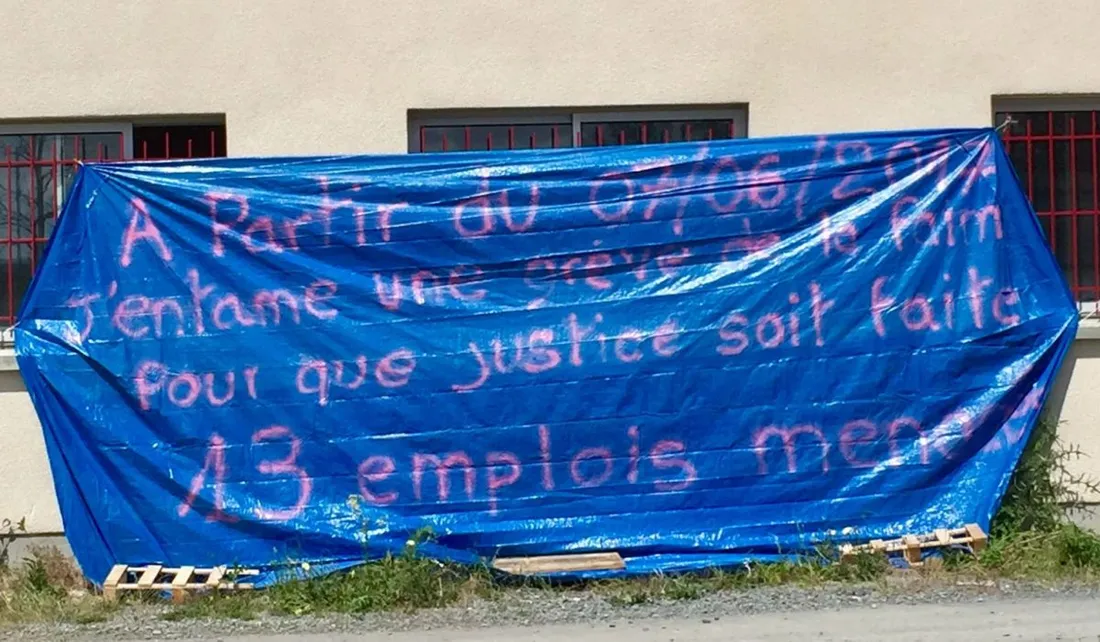 A Partir du 07/06/2017
J'entame une grève de la faim
pour que justice soit faite
13 emplois